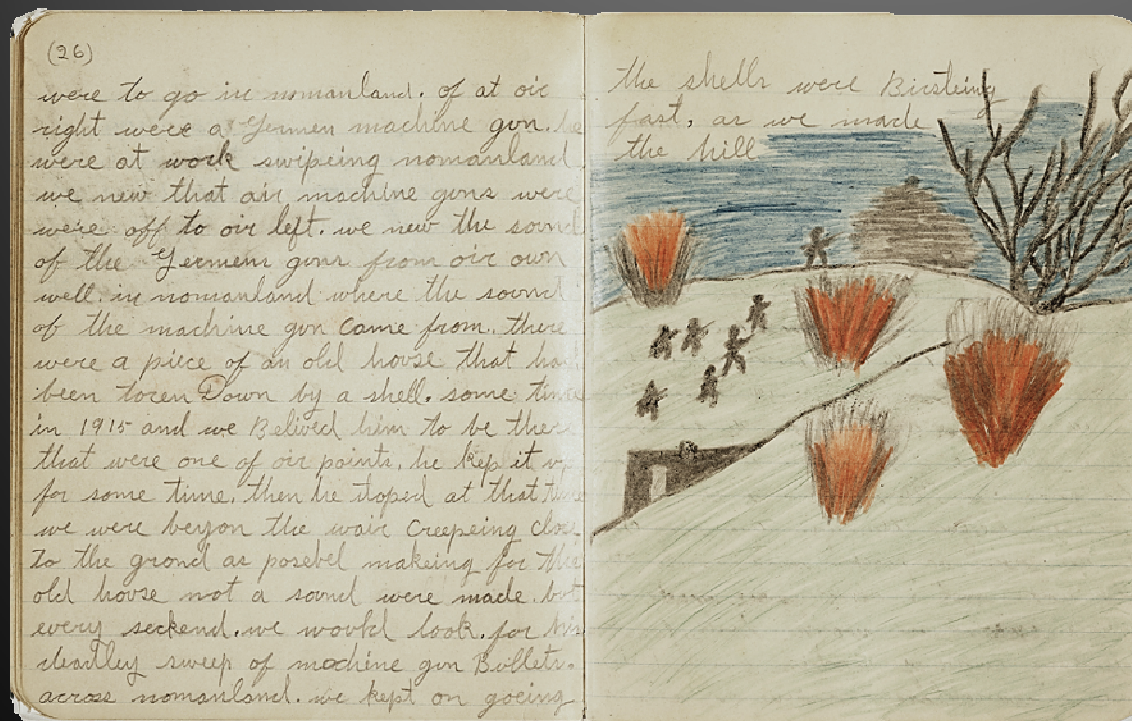 (26)
were to go in nomanland. of at oir
right were a Germen machine gon. he
were at work swipeing nomanland
we new that air machine gons were
were off to oir left. we new the sound
of the Germem gons from oir own
well. in nomanland where the sound
of the machine gon came from. there
were a piece of an old hoose that had
been toren Down by a shell. some time
in 1915 and we Belived him to be there
that were one of oir points. he kep it
for some time. then he stoped at that time
we were beyon the wair creepeing close
to the grond as posebel makeing for the
old hoose not a sound were made. but
every seckend. we woukl look. for his
deadley sweep of machine gon Bollets.
across nomanland. we kept on goeing
the shells were Birsteing
fast, as we made
the hill